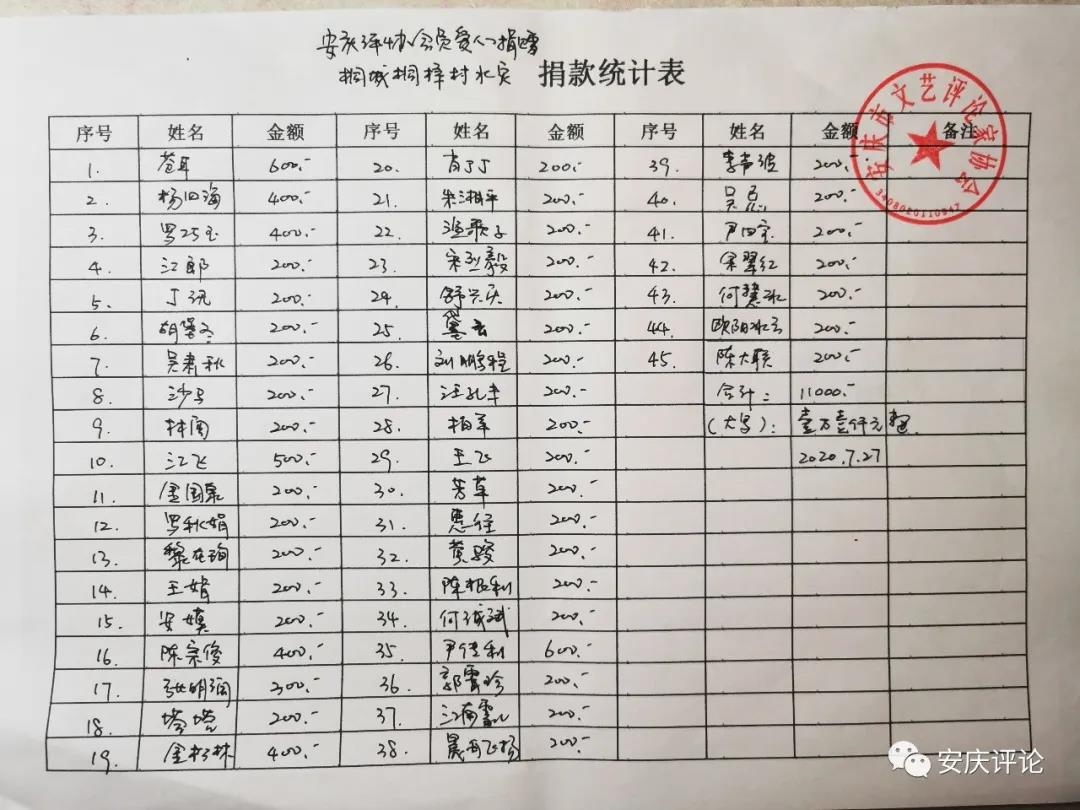 安庆评协会员爱人捐赠
桐城桐梓村水灾 捐款统计表
序号 姓名 金额 序号 姓名 金额 序号 姓名 金额 备注
1. 苍耳 600.- 20. 肖丁丁 200.- 39. 200.-
2. 杨四海 400.- 21. 朱湘平 200.- 40. 吴忌 200.-
3. 罗巧玉 400.- 22. 渔歌子 200.- 41. 尹四宝 200.-
4. 江郎 200.- 23. 宋烈毅 200.- 42. 余翠红 200.-
5. 丁讯 200.- 24. 舒兴庆 200.- 43. 何慧冰 200.-
6. 200.- 25. 黛云 200.- 44. 欧阳冰云 200.-
7. 吴春秋 200.- 26. 刘鹏程 200.- 45. 陈大联 200.-
8. 沙马 200.- 27. 汪孔丰 200.- 合计: 11000.-
9. 林雨 200.- 28. 柏军 200.- (大写): 壹万壹仟元整.
10. 江飞 500.- 29. 王飞 200.- 2020.7.27
11. 金国泉 200.- 30. 芳草 200.-
12. 罗秋娟 200.- 31. 200.-
13. 黎在珣 200.- 32. 黄骏 200.-
14. 王娟 200.- 33. 陈根利 200.-
15. 安媒 200.- 34. 何诚斌 200.-
16. 陈宗俊 400.- 35. 尹佳利 600.-
17. 张明润 300.- 36. 郭雪玲 200.-
18. 塔塔 200.- 37. 江南雪儿 200.-
19. 金杉林 400.- 38. 晨雨飞扬 200.-
安庆市文艺评论家协会
3408020110847
安庆评论